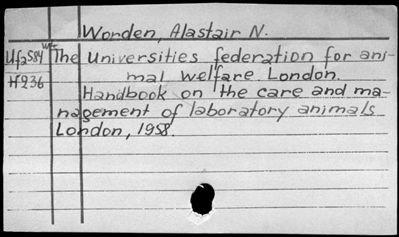 Worden, Alastair N.
Ufa584 The Universities federation for ani-
H236 mal welfare. London.
Handbook on the care and ma-
nagement of laboratory animals
London, 1958.